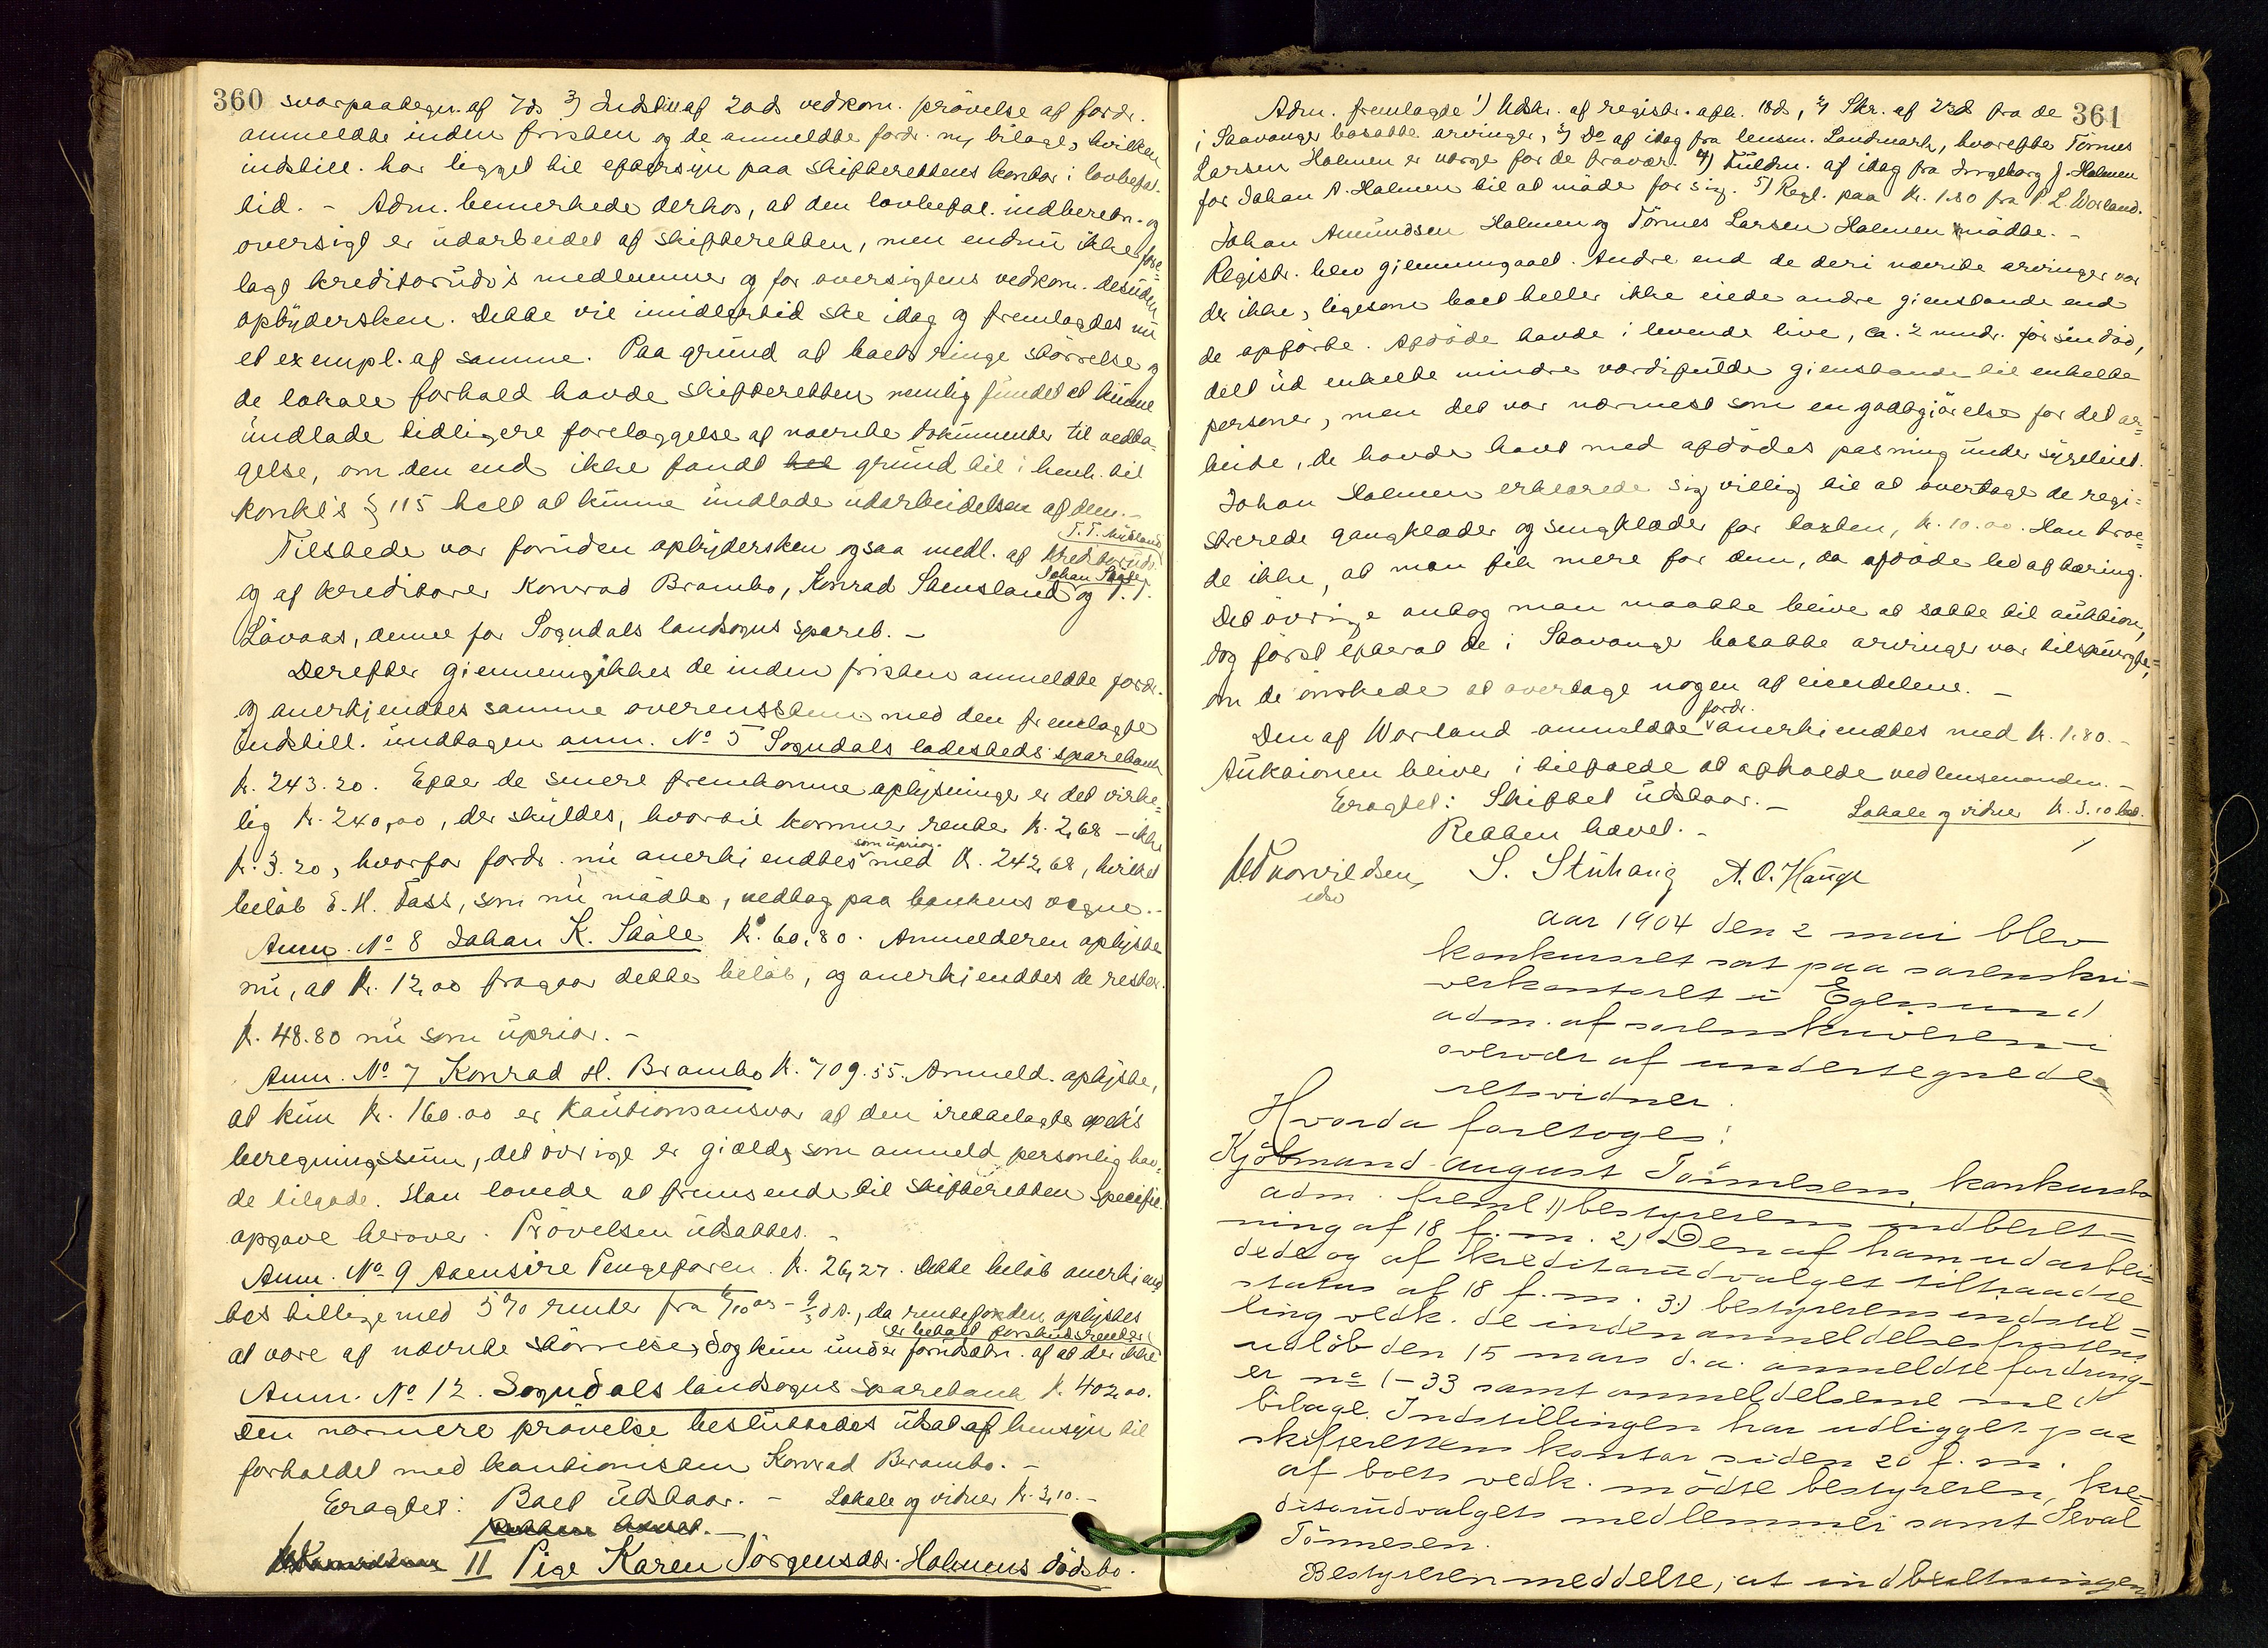 360 svarpaategn. af 7ds 3) Indstill. af 20ds vedkom. prövelse af fordr.
anmeldte inden fristen og de anmeldte fordr. m/ bilage, hvilken
indstill. har ligget til eftersyn paa skifterettens kontor i lovbefal.
tid. - Adm. bemerkede derhos, at den lovbefal. indberetn. og
oversigt er udarbeidet af skifteretten, men endnu ikke fore=
lagt kreditorudv's medlemmer og for oversigtens vedkom. desuden
opbydersken. Dette vil imidlertid ske idag og fremlagdes nu
et exempl. af samme. Paa grund af boets ringe störrelse og
de lokale forhold havde skifteretten nemlig fundet at kunne
undlade tidligere foreløggelse af nævnte dokumenter til vedta=
gelse, om den end ikke fandt grund til i henh. til
konkl's § 115 helt at kunne undlade udarbeidelsen af dem. -
Tilstede var foruden opbydersken ogsaa medl. af kreditorudv. T. T. Mydland
og af kreditorer Konrad Brambo, Konrad Stensland Johan Skaale og T. T.
Lövaas, denne for Sogndals landsogns spareb. -
Derefter giennemgikkes de inden fristen anmeldte fordr.
og anerkjendtes samme overensstem. med den fremlagte
indstill. undtagen anm. No 5 Sogndals ladesteds sparebank
kr. 243.20. Efter de senere fremkomne oplysninger er det virke=
lig kr. 240,00, der skyldes, hvortil kommer renter kr. 2,68 - ikke
kr. 3.20, hvorfor fordr. nu anerkiendtes som uprior. med kr. 242,68, hvilket
belöb E. H. Tass, som nu mödte, vedtog paa bankens vegne. -
Anm. No 8 Johan K. Skåle kr. 60,80. Anmelderen oplyste
nu, at kr. 12,00 fragaar dette belöb, og anerkiendtes de rester.
kr. 48.80 nu som uprior. -
Anm. No 7 Konrad H. Brambo kr. 709.55. Anmeld. oplyste,
at kun kr. 160.00 er kautionsansvar af den irettelagte
beregningssum, det övrige er giæld, som anmeld. personlig hav=
de tilgode. Han lovede at fremsende til skifteretten specific.
opgave herover. Prövelsen udsattes. -
Anm. No 9 Aaensire Pengeforen. kr. 26,27. Dette belöb anerkiend
tes tillige med 5 % renter fra, da rentefoden oplystes
at være af nævnte störrelse, dog kun under forudsætn. af at der ikke er betalt forskudsrenter
Anm. No 12. Sogndals landsogns sparebank kr. 402,00.
Den nærmere prövelse besluttedes udsat af hensyn til
forholdet med kautionisten Konrad Brambo. -
Eragtet: Boet udstaar. - Lokale og vidner kr. 3,10. -
Retten hævet. -
II Pige Karen Jörgensdtr. Holmens dödsbo.
361
Adm. fremlagde 1) Udskr. af registr. afh. 18ds, 2) Skr. af 23ds fra de
i Stavanger bosatte arvinger, 3) Do af idag fra lensm. Landmark, hvorefter Törnes
Larsen Holmen er værge for de fravær. 4) Fuldm. af idag fra Ingeborg J. Holmen
for Johan A. Holmen til at möde for sig. 5) Regl. paa kr. 1.80 fra P. L. Worland.
Johan Amundsen Holmen og Törnes Larsen Holmen mödte. -
Registr. blev giennemgaaet. Andre end de deri nævnte arvinger var
der ikke, ligesom boet heller ikke eiede andre gienstande end
de opförte. Afdöde havde i levende live, ca. 2 mndr. för sin död,
delt ud enkelte mindre værdifulde gienstande til enkelte
personer, men det var nærmest som en godtgiörelse for det ar=
beide, de havde havt med afdödes pasning under sygeleiet.
Johan Holmen erklærede sig villig til at overtage de regi=
strerede gangklæder og sengklæder for taxten, kr. 10.00. Han troe=
de ikke, at man fik mere for dem, da afdöde led af tæring.
Det övrige antog man maatte blive at sætte til auktion,
dog först efterat de i Stavanger bosatte arvinger var tilspurgte,
om de önskede at overtage nogen af eiendelene. -
Den af Worland anmeldte fordr. anerkiendtes med kr. 1.80. -
Auktionen bliver i tilfælde at afholde ved lensmanden. -
Eragtet: Skiftet udstaar. - Lokale og vidner kr. 3.10 bet.
Retten hævet. -
S. Stuhaug A. O. Hauge
Aar 1904 den 2 mai blev
konkursret sat paa sorenskri=
verkontoret i Egersund
adm. af sorenskriveren i
overvær af undertegnede
retsvidner.
Hvorda foretoges:
Kjöbmand August Tönnesens konkursbo
adm. freml. 1) bestyrerens indberet=
ning af 18 f. m. 2) Den af ham udarbei=
dede og af kreditorudvalget tiltraadte
status af 18 f. m. 3) bestyrerens indstil=
ling vedk. de inden anmeldelsesfristens
udlöb den 15 mars d. a. anmeldte fordring=
er no 1-33 samt anmeldelserne med
bilage. Indstillingen har udligget paa
skifterettens kontor siden 20 f. m.
af boets vedk. mödte bestyreren, kre=
ditorudvalgets medlemmer samt Seval
Tönnesen.
Bestyreren meddelte, at indberetningen